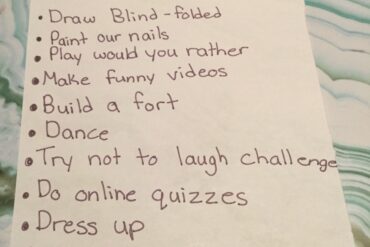 • Draw Blind-folded
• Paint our nails
• Play would you rather
• Make funny videos
• Build a fort
• Dance
• Try not to laugh challenge
• Do online quizzes
• Dress up